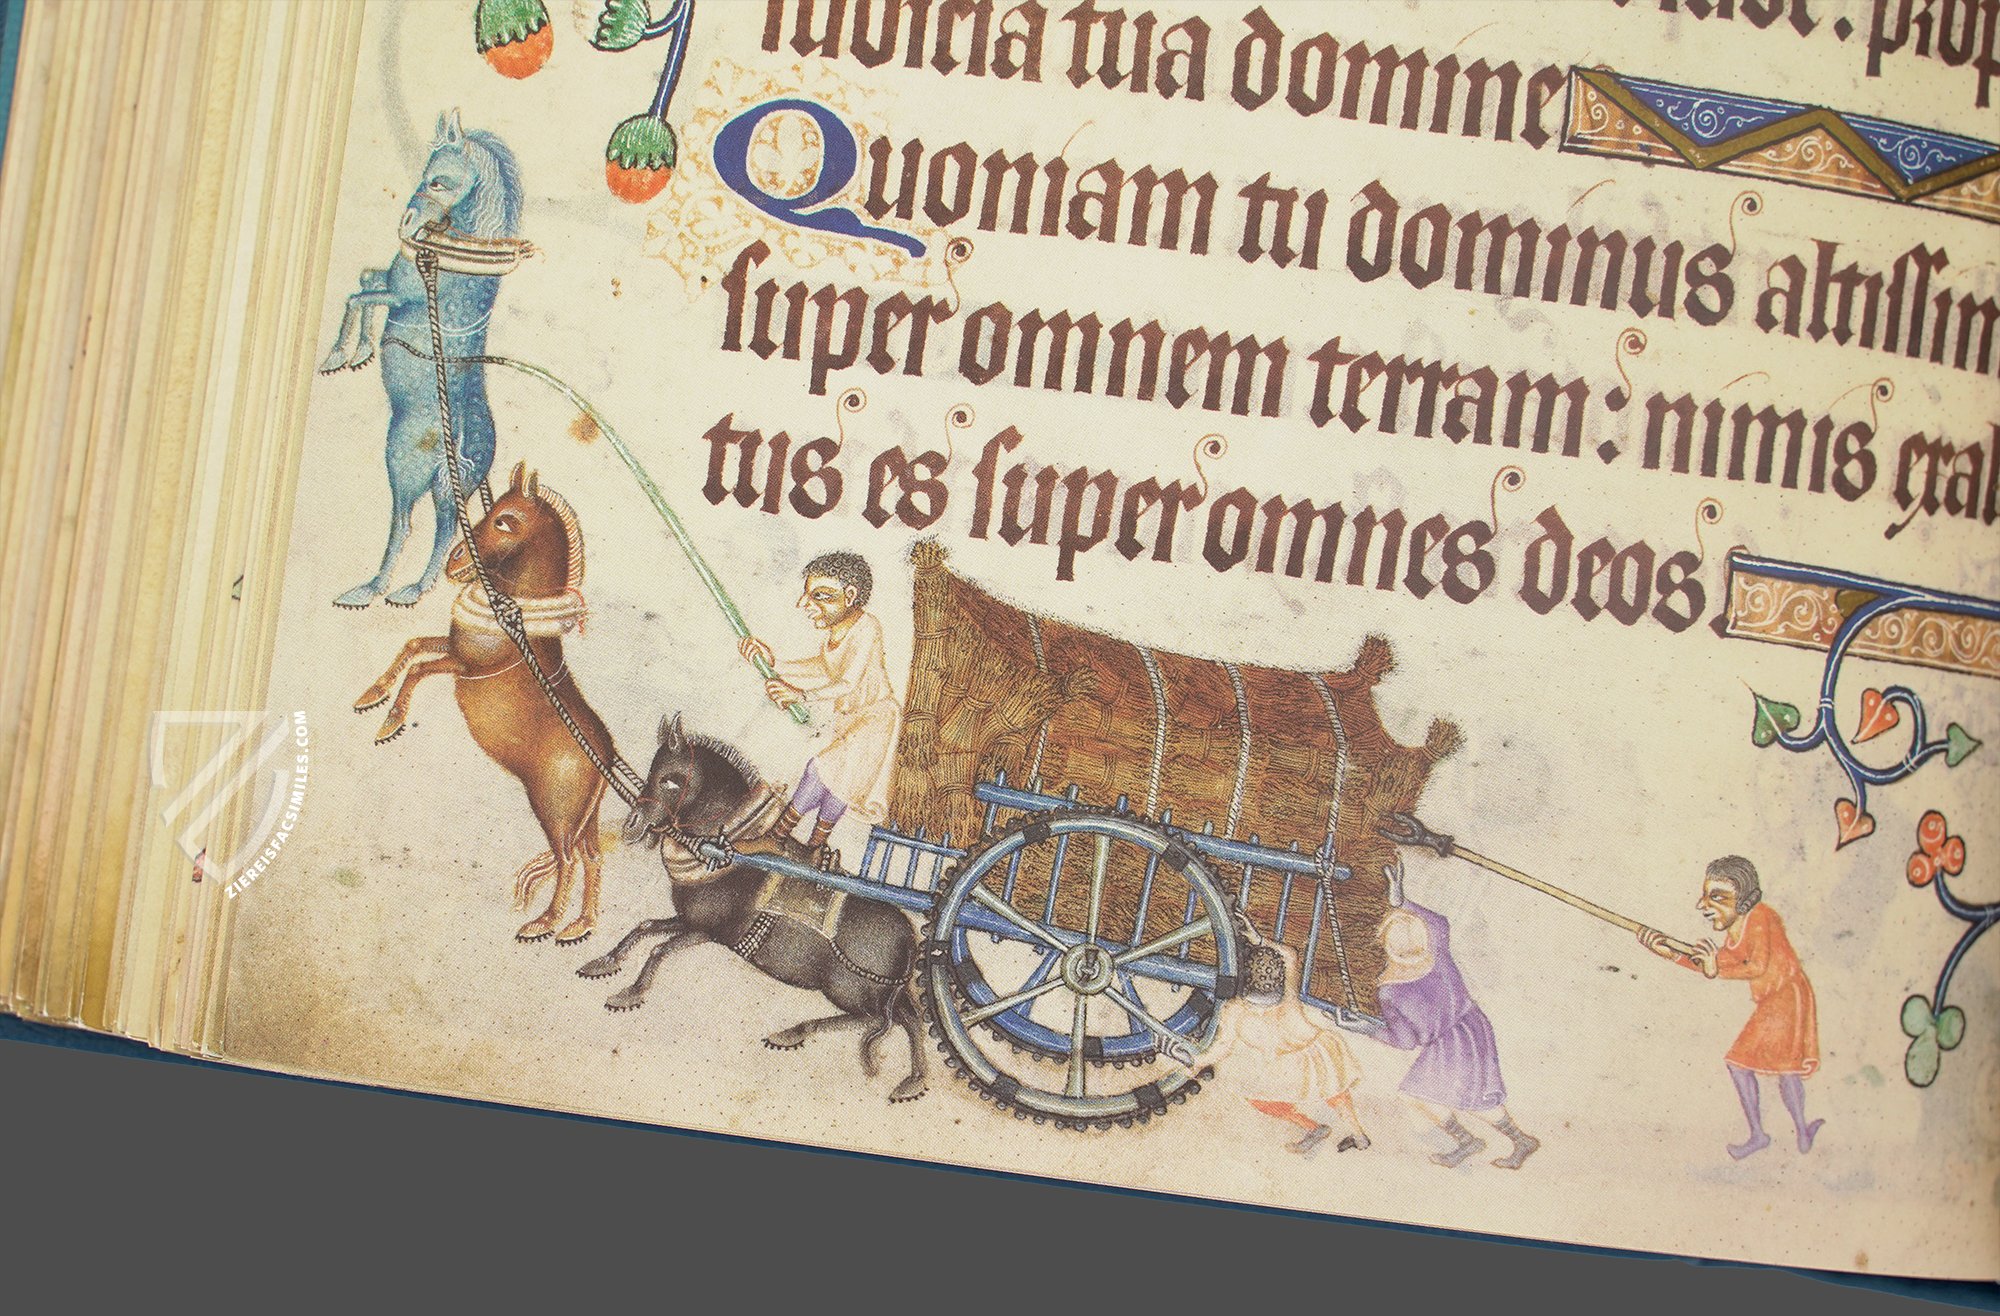 iudicia tua domine
Quoniam tu dominus altissim
super omnem terram: nimis exal
tus es super omnes deos.
ZIEREISFACSIMILES.COM